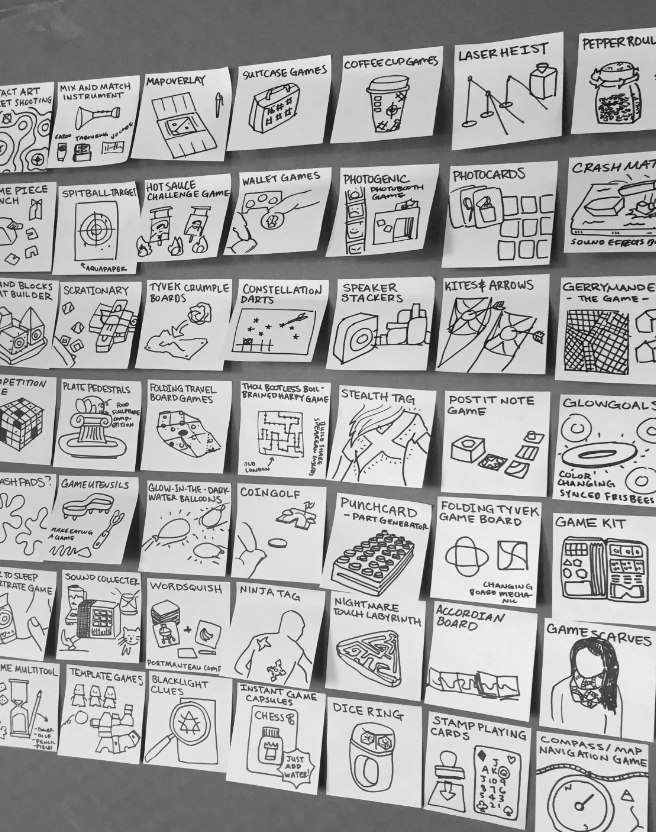 TACT ART
ET SHOOTING
MIX AND MATCH
INSTRUMENT
KAZOO
MAP OVERLAY
SUITCASE GAMES
COFFEE CUP GAMES
LASER HEIST
PEPPER ROUL
ME PIECE
NCH
SPITBALL TARGET
AQUAPAPER
HOT SAUCE
CHALLENGE GAME
WALLET GAMES
PHOTOGENIC
PHOTOBOOTH
GAME
PHOTOCARDS
CRASH MAT
SOUND EFFECTS
ND BLOCKS
AT BUILDER
SCRATIONARY
TYVEK CRUMPLE
BOARDS
CONSTELLATION
DARTS
SPEAKER
STACKERS
KITES & ARROWS
GERRYMANDE
- THE GAME -
PETITION
E
PLATE PEDESTALS
FOOD
SCULPTURE
COMP-
ETITION
FOLDING TRAVEL
BOARD GAMES
THOU BOOTLESS BOIL-
BRAINED HARPY GAME
OLD
LONDON
BUILD SHAKE-
SPEAREAN DISSES
STEALTH TAG
POST IT NOTE
GAME
GLOWGOALS
COLOR
CHANGING
SYNCED FRISBEES
ASH PADS?
GAME UTENSILS
MAKE EATING
A GAME
GLOW-IN-THE-DARK
WATER BALLOONS
COIN GOLF
PUNCHCARD
- PART GENERATOR
FOLDING TYVEK
GAME BOARD
CHANGING
BOARD MECHA-
NIC
GAME KIT
TO SLEEP
TRATE GAME
SOUND COLLECTER
WORDSQUISH
PORTMANTEAU COMP
NINJA TAG
NIGHTMARE
TOUCH LABYRINTH
ACCORDIAN
BOARD
GAME SCARVES
ME MULTITOOL
- DICE
- PENCIL
TEMPLATE GAMES
BLACKLIGHT
CLUES
INSTANT GAME
CAPSULES
CHESS
JUST
ADD
WATER!
DICE RING
STAMP PLAYING
CARDS
COMPASS/MAP
NAVIGATION GAME